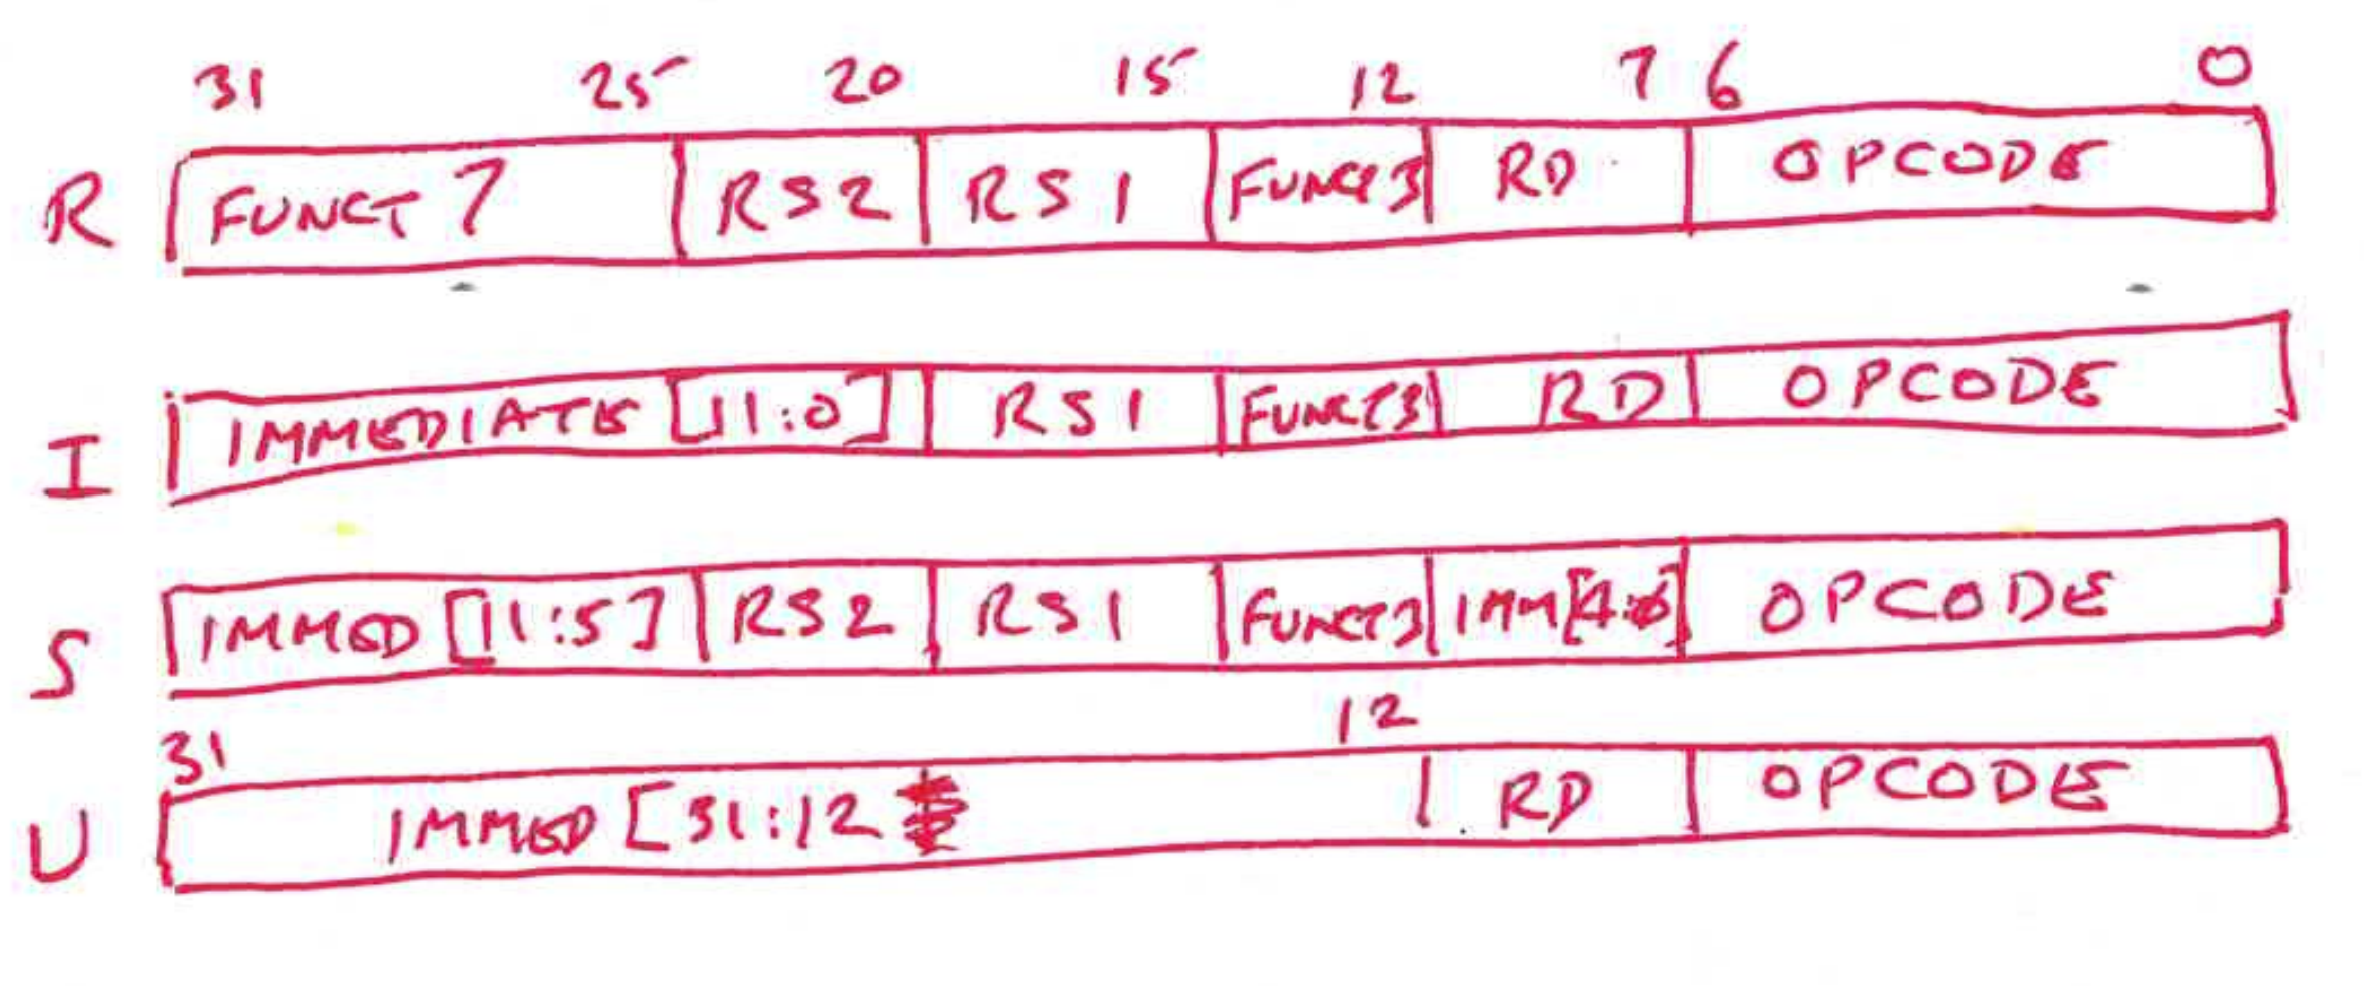 31 25 20 15 12 7 6 0
R FUNCT 7 RS2 RS1 FUNCT3 RD OPCODE
I IMMEDIATE [11:0] RS1 FUNCT3 RD OPCODE
S IMMED [11:5] RS2 RS1 FUNCT3 IMM[4:0] OPCODE
31 12
U IMMED [31:12 RD OPCODE